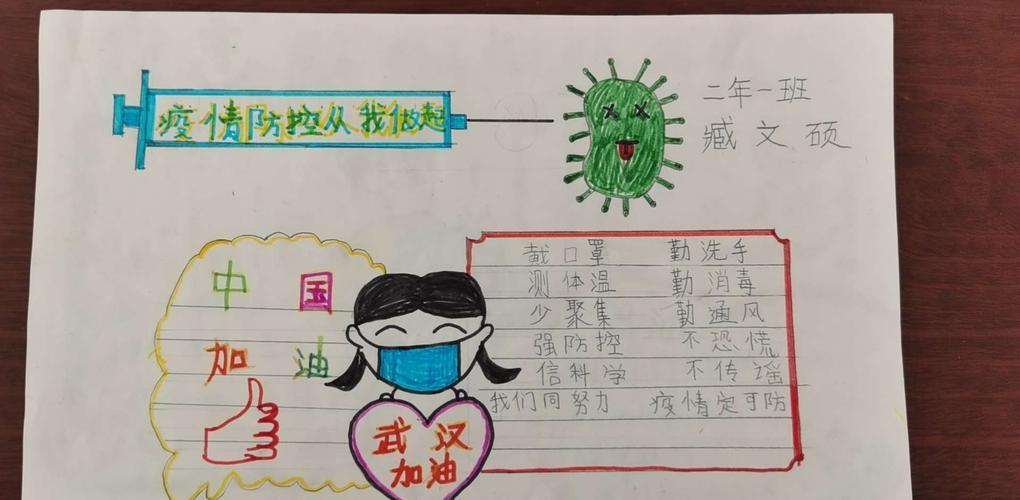 疫情防控从我做起
二年一班
臧文硕
中国
加油
武汉
加油
戴口罩 勤洗手
测体温 勤消毒
少聚集 勤通风
强防控 不恐慌
信科学 不传谣
我们同努力 疫情定可防